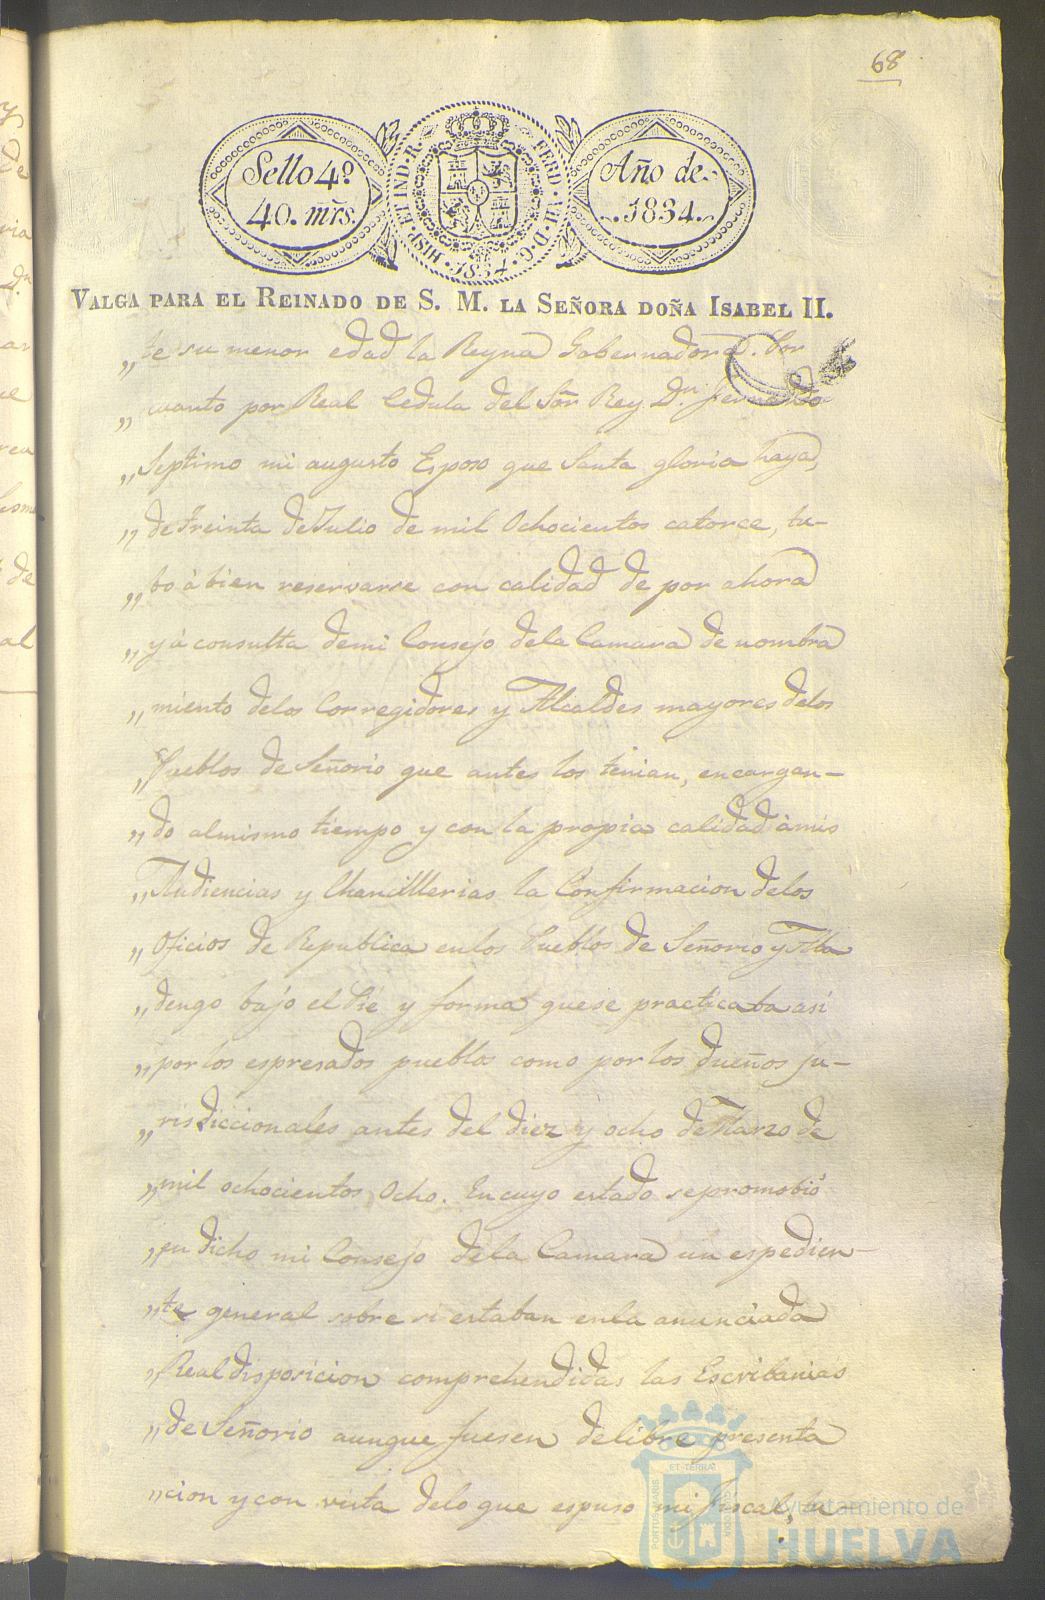 68
Sello 4º
40. mrs.
HISP. ET IND. R. FERD. VII. D. G. 1834
Año de
1834.
VALGA PARA EL REINADO DE S. M. LA SEÑORA DOÑA ISABEL II.
„te su menor edad la Reyna Gobernadora. Por
„cuanto por Real Cedula del Sõr Rey Dn Fernando
„Septimo mi augusto Esposo que Santa gloria haya,
„de Treinta de Julio de mil Ochocientos catorce, tu-
„bo à bien reservarse con calidad de por ahora
„y à consulta demi Consejo dela Camara de nombra
„miento delos Corregidores y Alcaldes mayores delos
„Pueblos de Señorio que antes los tenian, encargan-
„do almismo tiempo y con la propia calidad àmis
„Audiencias y Chancillerias la Confirmacion delos
„Oficios de Republica enlos Pueblos de Señorio y Aba
„dengo bajo el Pie y forma quese practicaba asi
„por los espresados pueblos como por los dueños ju-
„risdiccionales antes del diez y ocho de Marzo de
„mil ochocientos Ocho. En cuyo estado sepromobió
„en dicho mi Consejo dela Camara un espedien-
„te general sobre si estaban enla anunciada
„Real disposicion comprehendidas las Escribanias
„de Señorio aunque fuesen delibre presenta
„cion y con vista delo que espuso mi fiscal, la
PORTUS MARIS ET TERRÆ CUSTODIA
Ayuntamiento de
HUELVA